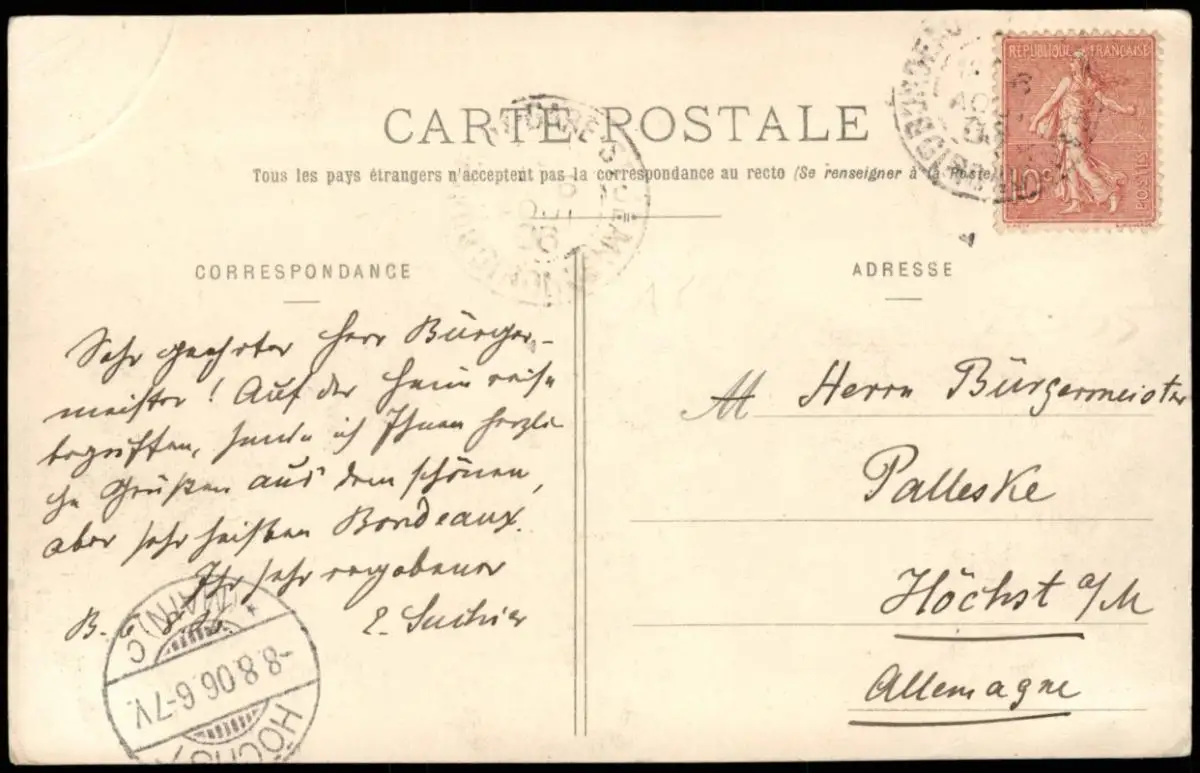 CARTE POSTALE
Tous les pays étrangers n'acceptent pas la correspondance au recto (Se renseigner à la Poste)
CORRESPONDANCE
Sehr geehrter Herr Bürger-
meister! Auf der Heimreise
begriffen, sende ich Ihnen herzli-
che Grüßen aus dem schönen,
aber sehr heißen Bordeaux.
Ihr sehr ergebener
B. 6.
E. Suchier
ADRESSE
M Herrn Bürgermeister
Palleske
Höchst a/M
Allemagne
REPUBLIQUE FRANÇAISE
10c
POSTES
BORDEAUX
GARE
(MAIN)
C
-8.8.06.6-7V.
HÖCHST